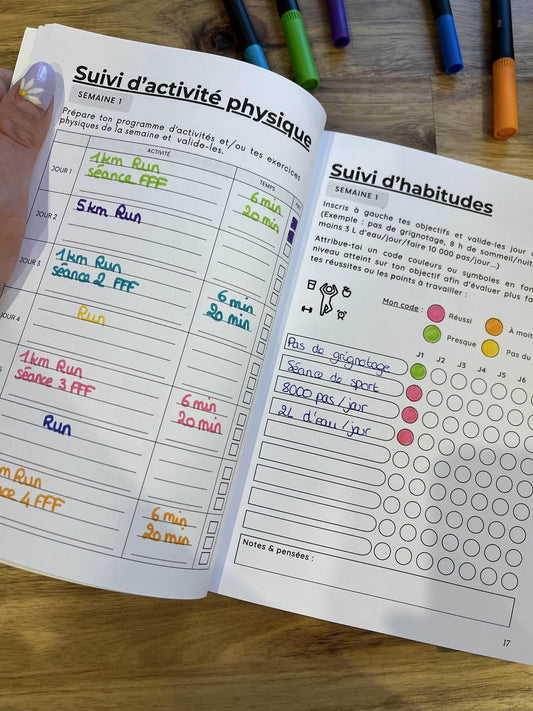 Suivi d'activité physique
SEMAINE 1
Prépare ton programme d'activités et/ou tes exercices
physiques de la semaine et valide-les.
ACTIVITÉ
TEMPS
JOUR 1
1km Run
séance FFF
6 min
20 min
JOUR 2
5km Run
JOUR 3
1km Run
séance 2 FFF
6 min
20 min
Run
1km Run
séance 3 FFF
6 min
20 min
Run
m Run
nce 4 FFF
6 min
20 min
Suivi d'habitudes
SEMAINE 1
Inscris à gauche tes objectifs et valide-les jour
(Exemple : pas de grignotage, 8 h de sommeil/nuit
moins 3 L d'eau/jour/faire 10 000 pas/jour...)
Attribue-toi un code couleurs ou symboles en fon
niveau atteint sur ton objectif afin d'évaluer plus fa
tes réussites ou les points à travailler :
Mon code :
Réussi
À moit
Presque
Pas du
J1 J2 J3 J4 J5 J6
Pas de grignotage
Séance de sport
8000 pas/jour
2L d'eau/jour
Notes & pensées :
17